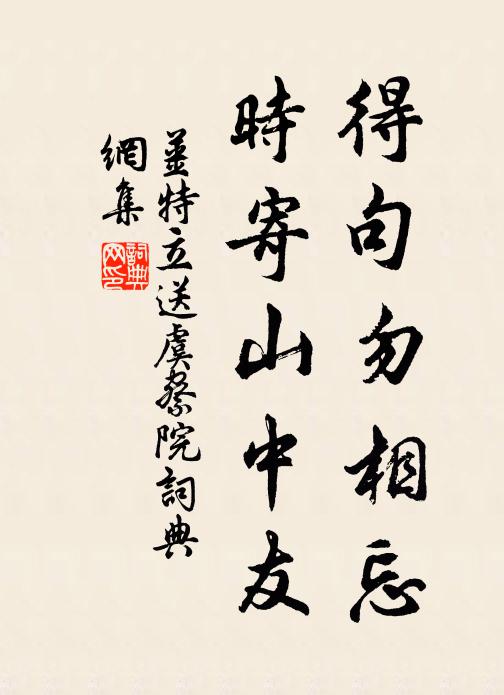 得句勿相忘
時寄山中友
姜特立送虞察院詞典
網集
詞典网印